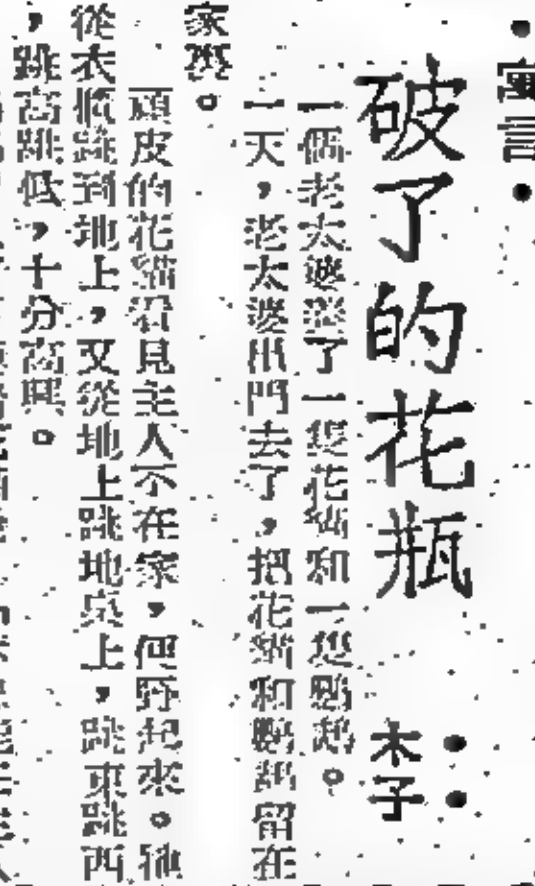 •寓言•
破了的花瓶
木子
一個老太婆養了一隻花貓和一隻鸚鵡。
一天，老太婆出門去了，把花貓和鸚鵡留在
家裡。
頑皮的花貓看見主人不在家，便野起來。牠
從衣櫥跳到地上，又從地上跳地桌上，跳東跳西
，跳高跳低，十分高興。